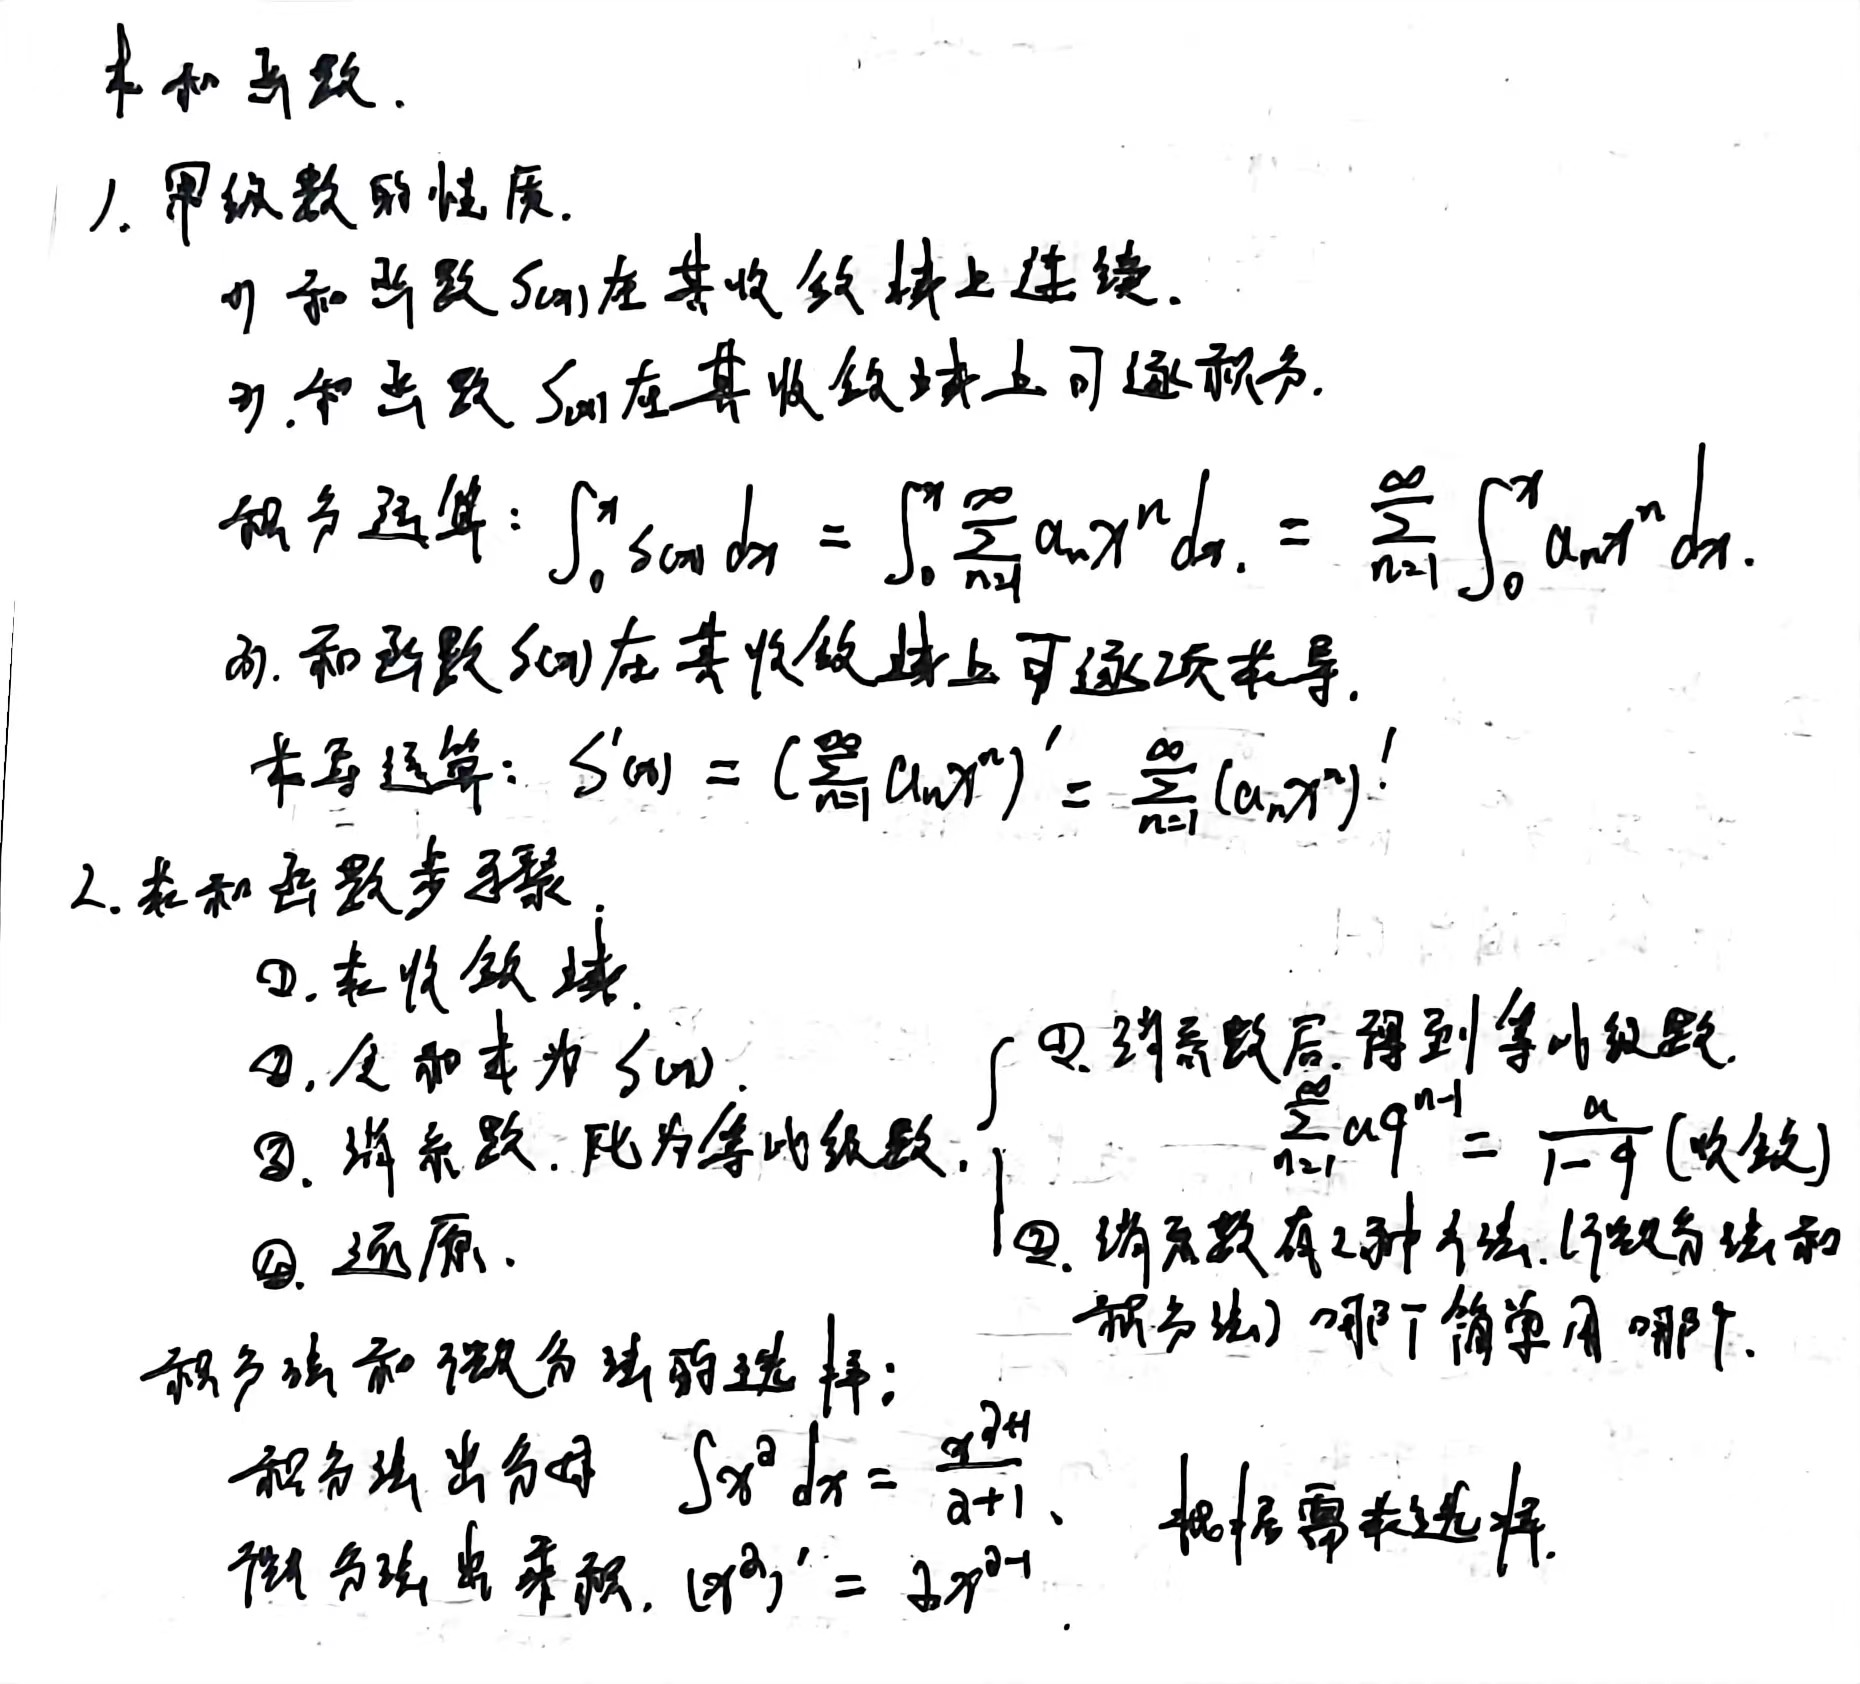 求和函数.
1. 幂级数的性质.
(1) 和函数S(x)在其收敛域上连续.
(2). 和函数S(x)在其收敛域上可逐积分.
积分运算: ∫₀ˣ S(x) dx = ∫₀ˣ ∑_{n=1}^{∞} aₙxⁿ dx. = ∑_{n=1}^{∞} ∫₀ˣ aₙxⁿ dx.
(3). 和函数S(x)在其收敛域上可逐项求导.
求导运算: S'(x) = (∑_{n=1}^{∞} aₙxⁿ)' = ∑_{n=1}^{∞} (aₙxⁿ)'
2. 求和函数步骤.
①. 求收敛域.
②. 令和式为S(x).
③. 消系数. 化为等比级数.
④. 还原.
①. 消系数后. 得到等比级数.
∑_{n=1}^{∞} aq^{n-1} = a/(1-q) (收敛)
②. 消系数有2种方法. (微分法和
积分法) 哪个简单用哪个.
积分法和微分法的选择:
积分法出分母 ∫x^a dx = x^{a+1}/(a+1)、
微分法出乘积. (x^a)' = ax^{a-1}.
根据需求选择.